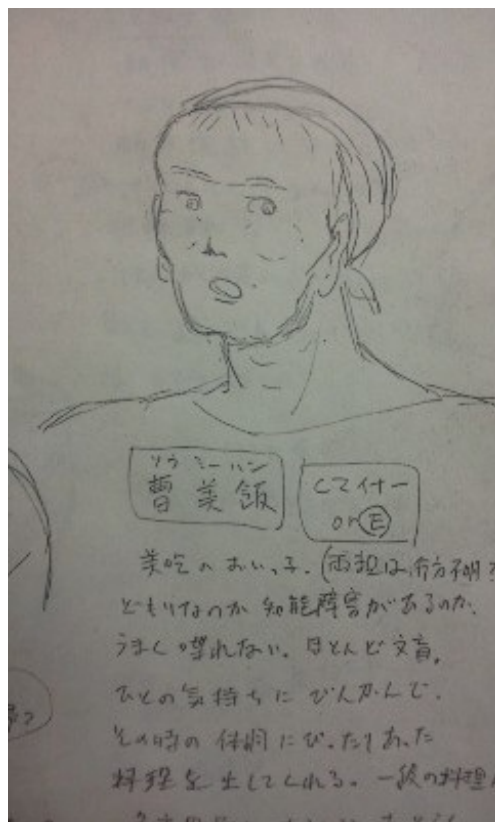 ソウ ミーハン
曹 美 飯
Cマイナー
or E
美吃のおいっ子。(両親は行方不明
どもりなのか知能障害があるのか、
うまく喋れない。ほとんど文盲。
ひとの気持ちにびんかんで、
その時の体調にぴったりあった
料理を出してくれる。一般の料理